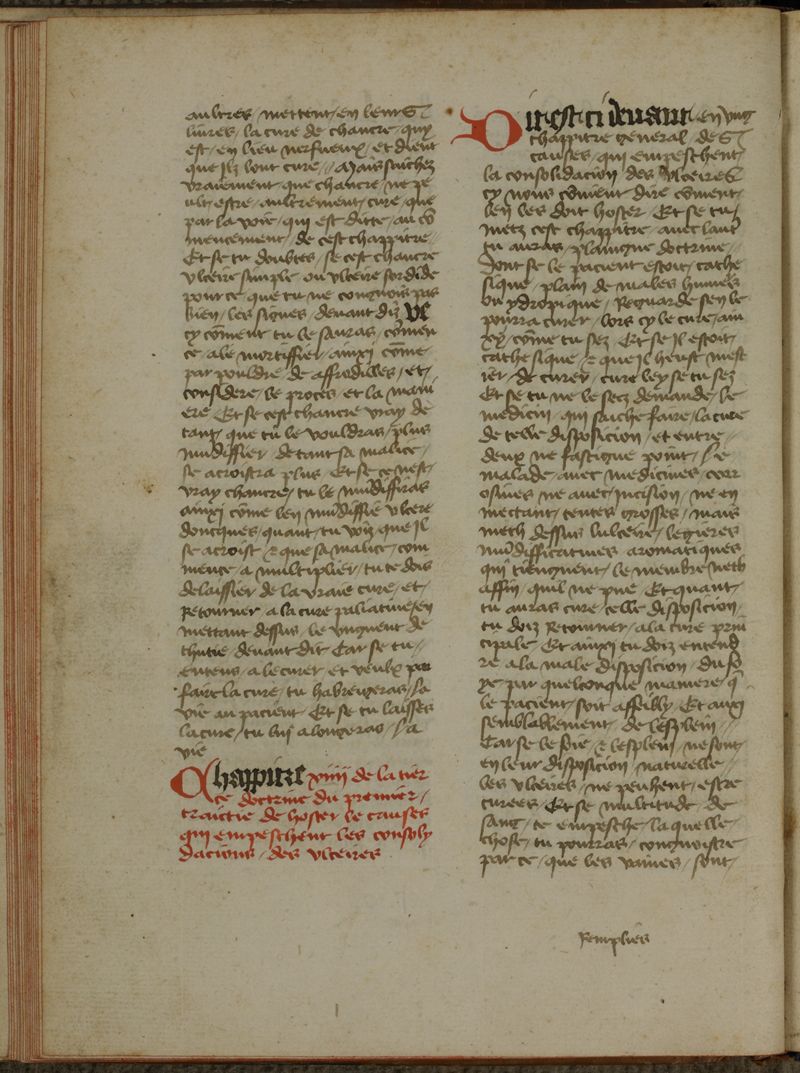 aultres mettent en leurs
livres la cure de chancre quy
est en lieu nerfveux et dient
que ilz lont cure Mais saichez
vrayement que chancre ne pe
ult estre aultrement cure que
par la voie qui est ditte au cō
mencement de cest chappitre
Et se tu doubtes se cest chancre
ulcere simple ou ulcere sordide
pour ce que tu ne congnois pas
bien les signes devant diz Ve
cy cōment tu le sauras cōmen
ce a le mortiffier ainxi cōme
par pouldre de affrodilles et
considere le proces et la mani
ere Et se cest chancre vray de
tant que tu le vouldras plus
mūdiffier de tant sa malice
se acroistra plus Et se ce nest
vray chancre tu le mūdiffiras
ainxi cōme len mūdiffie ulcere
doncques quant tu voiz que il
se acroist & que sa malice com
mence a multiplier tu te dois
delaissier de la vraie cure et
Retourner a la cure paliative en
mettant dessus le unguent de
thutie devant dit Car se tu
entens a le curer et veulx par
faire la cure tu habregeras la
vie au pacient Et se tu laisses
la cure tu lui alongeras la
vie
Chappitre xiiii de la tier
ce doctrine du premier
traictie de hoster les causes
qui empeschent les consoly
dacions des ulceres
Dit est ci devant en ung
chappitre general des
causes qui empeschent
la consolidacion des ulceres
cy nous cōvient dire cōment
len les doit hoster Et se tu
metz cest chappitre avec laut
tu auras planiere doctrine
Dont se le pacient estoit cathe
sique plain de males humeurs
ou ydropique Reguarde se len le
pourra curer lors cy le cure ain
xy cōme tu sez Et se il estoit
cathesique & que il heust mest
ier de curer cure ley se tu sez
Et se tu ne le sez demande le
medicin qui saiche faire la cure
de telle disposicion et entre
deux ne fastigue point le
malade avec medicines corr
osives ne avec incision ne en
mectant tentes grosses mais
meth dessus lulcere legieres
mūdifficatives aromatiques
qui tiengnent le membre neth
affin quil ne pue Et quant
tu auras cure telle disposicion
tu doiz Retourner a la cure prin
cipale Et ainxi tu doiz entend
re a la male disposicion du fo
ye par quelconque maniere q̄
le pacient soit affeibly Et auxi
semblablement de lesplein
Car se le foie & lesplein ne sont
en leur disposicion naturelle
les ulceres ne peuhent estre
curees Et se multitude de
sang te empesche la quelle
chose tu pourras congnoistre
par ce que les vaines sont
Remplies